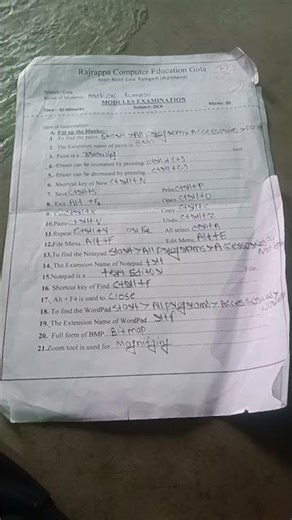 Rajrappa Computer Education Gola
Main Road Gola, Ramgarh (Jharkhand)
Name of Student
MODULES EXAMINATION
Time:- 30 Minutes Subject:-DCA Marks 30
Date of Examination
A. Fill up the blanks:-
1. To find the paint Start > All programs > Accessories >
2. The Extension name of paint is BMP
3. Paint is a Drawing tool.
4. Eraser can be increased by pressing Ctrl + (+)
5. Eraser can be decreased by pressing Ctrl + (-)
6. Shortcut key of New Ctrl + N
7. Save Ctrl + S Print Ctrl + P
8. Exit Alt + F4 Open Ctrl + O
9. Cut Ctrl + X Copy Ctrl + C
10. Paste Ctrl + V Undo Ctrl + Z
11. Repeat Ctrl + Y or F4 All select Ctrl + A
12. File Menu Alt + F Edit Menu Alt + E
13. To find the Notepad Start > All programs > Accessories
14. The Extension Name of Notepad txt
15. Notepad is a Text Editor File.
16. Shortcut key of Find Ctrl + F
17. Alt + F4 is used to Close
18. To find the WordPad Start > All programs > Accessories >
19. The Extension Name of WordPad rtf
20. Full form of BMP Bitmap
21. Zoom tool is used for Magnifying